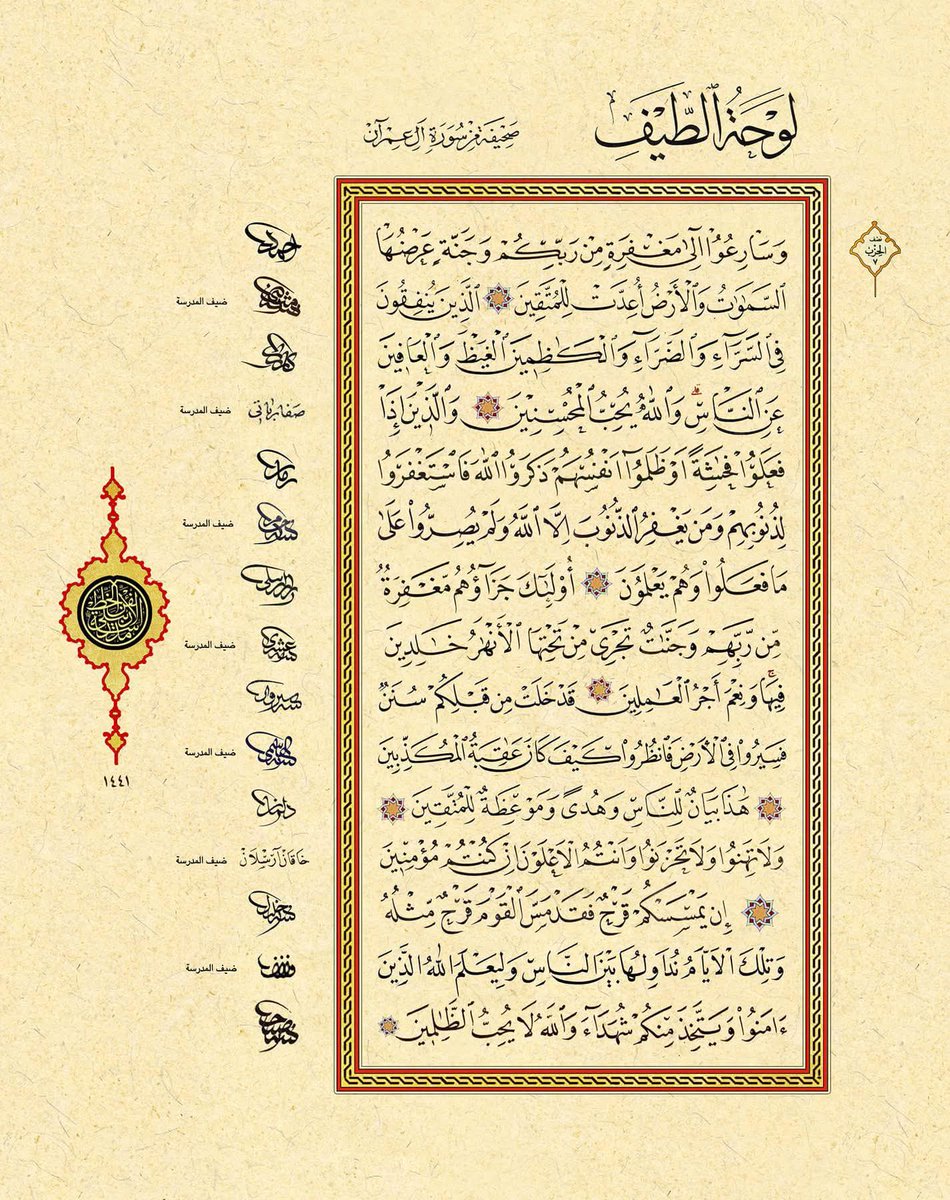 لَوْحَةُ ٱلطَّيْفِ
صَحِيفَة مِنْ سُورَةِ آلِ عِمْرَان
نصف
الحزب
٧
وَسَارِعُوٓا۟ إِلَىٰ مَغْفِرَةٍ مِّن رَّبِّكُمْ وَجَنَّةٍ عَرْضُهَا
ٱلسَّمَٰوَٰتُ وَٱلْأَرْضُ أُعِدَّتْ لِلْمُتَّقِينَ ٱلَّذِينَ يُنفِقُونَ
فِى ٱلسَّرَّآءِ وَٱلضَّرَّآءِ وَٱلْكَٰظِمِينَ ٱلْغَيْظَ وَٱلْعَافِينَ
عَنِ ٱلنَّاسِ وَٱللَّهُ يُحِبُّ ٱلْمُحْسِنِينَ وَٱلَّذِينَ إِذَا
فَعَلُوا۟ فَٰحِشَةً أَوْ ظَلَمُوٓا۟ أَنفُسَهُمْ ذَكَرُوا۟ ٱللَّهَ فَٱسْتَغْفَرُوا۟
لِذُنُوبِهِمْ وَمَن يَغْفِرُ ٱلذُّنُوبَ إِلَّا ٱللَّهُ وَلَمْ يُصِرُّوا۟ عَلَىٰ
مَا فَعَلُوا۟ وَهُمْ يَعْلَمُونَ أُو۟لَٰٓئِكَ جَزَآؤُهُم مَّغْفِرَةٌ
مِّن رَّبِّهِمْ وَجَنَّٰتٌ تَجْرِى مِن تَحْتِهَا ٱلْأَنْهَٰرُ خَٰلِدِينَ
فِيهَا وَنِعْمَ أَجْرُ ٱلْعَٰمِلِينَ قَدْ خَلَتْ مِن قَبْلِكُمْ سُنَنٌ
فَسِيرُوا۟ فِى ٱلْأَرْضِ فَٱنظُرُوا۟ كَيْفَ كَانَ عَٰقِبَةُ ٱلْمُكَذِّبِينَ
هَٰذَا بَيَانٌ لِّلنَّاسِ وَهُدًى وَمَوْعِظَةٌ لِّلْمُتَّقِينَ
وَلَا تَهِنُوا۟ وَلَا تَحْزَنُوا۟ وَأَنتُمُ ٱلْأَعْلَوْنَ إِن كُنتُم مُّؤْمِنِينَ
إِن يَمْسَسْكُمْ قَرْحٌ فَقَدْ مَسَّ ٱلْقَوْمَ قَرْحٌ مِّثْلُهُ
وَتِلْكَ ٱلْأَيَّامُ نُدَاوِلُهَا بَيْنَ ٱلنَّاسِ وَلِيَعْلَمَ ٱللَّهُ ٱلَّذِينَ
ءَامَنُوا۟ وَيَتَّخِذَ مِنكُمْ شُهَدَآءَ وَٱللَّهُ لَا يُحِبُّ ٱلظَّٰلِمِينَ
ضيف المدرسة
ضيف المدرسة
ضيف المدرسة
ضيف المدرسة
ضيف المدرسة
ضيف المدرسة
ضيف المدرسة
١٤٤١